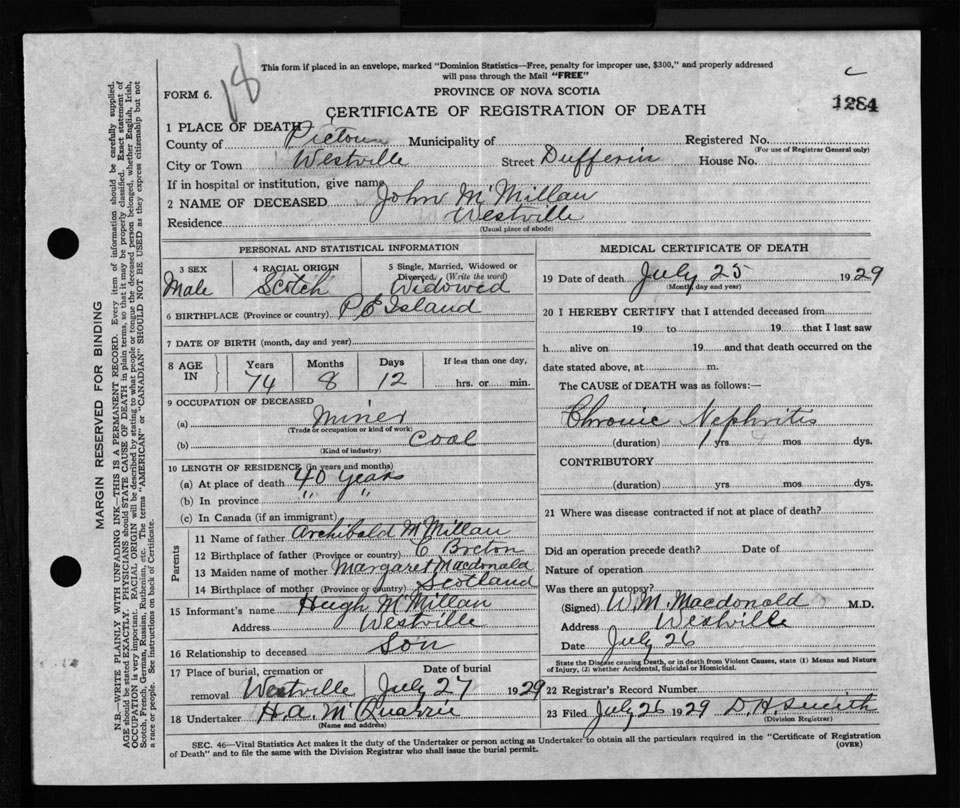 This form if placed in an envelope, marked "Dominion Statistics—Free, penalty for improper use, $300," and properly addressed
will pass through the Mail "FREE"
18
c
FORM 6.
PROVINCE OF NOVA SCOTIA
CERTIFICATE OF REGISTRATION OF DEATH
1284
1 PLACE OF DEATH
County of Pictou Municipality of Registered No.
(For use of Registrar General only)
City or Town Westville Street Dufferin House No.
If in hospital or institution, give name
2 NAME OF DECEASED John McMillan
Residence Westville
(Usual place of abode)
PERSONAL AND STATISTICAL INFORMATION
3 SEX 4 RACIAL ORIGIN 5 Single, Married, Widowed or
Divorced (Write the word)
Male Scotch Widowed
6 BIRTHPLACE (Province or country) P E Island
7 DATE OF BIRTH (month, day and year)
8 AGE IN Years Months Days If less than one day,
74 8 12 hrs. or min.
9 OCCUPATION OF DECEASED
(a) Miner
(Trade or occupation or kind of work)
(b) Coal
(Kind of industry)
10 LENGTH OF RESIDENCE (in years and months)
(a) At place of death 40 years
(b) In province " "
(c) In Canada (if an immigrant)
Parents
11 Name of father Archibald McMillan
12 Birthplace of father (Province or country) C Breton
13 Maiden name of mother Margaret Macdonald
14 Birthplace of mother (Province or country) Scotland
15 Informant's name Hugh McMillan
Address Westville
16 Relationship to deceased Son
17 Place of burial, cremation or Date of burial
removal Westville July 27 1929
18 Undertaker H. A. McQuarrie
(Name and address)
MEDICAL CERTIFICATE OF DEATH
19 Date of death July 25 1929
(Month, day and year)
20 I HEREBY CERTIFY that I attended deceased from
19 to 19 that I last saw
h alive on 19 and that death occurred on the
date stated above, at m.
The CAUSE of DEATH was as follows:—
Chronic Nephritis
(duration) 1 yrs mos dys.
CONTRIBUTORY
(duration) yrs mos dys.
21 Where was disease contracted if not at place of death?
Did an operation precede death? Date of
Nature of operation
Was there an autopsy?
(Signed) W. M. Macdonald M.D.
Address Westville
Date July 26
State the Disease causing Death, or in death from Violent Causes, state (1) Means and Nature
of Injury, (2) whether Accidental, Suicidal or Homicidal.
22 Registrar's Record Number
23 Filed July 26 1929 D. H. Smith
(Division Registrar)
SEC. 46—Vital Statistics Act makes it the duty of the Undertaker or person acting as Undertaker to obtain all the particulars required in the "Certificate of Registration
of Death" and to file the same with the Division Registrar who shall issue the burial permit.
(OVER)
MARGIN RESERVED FOR BINDING
N.B.—WRITE PLAINLY WITH UNFADING INK—THIS IS A PERMANENT RECORD. Every item of information should be carefully supplied.
AGE should be stated EXACTLY. PHYSICIANS should STATE CAUSE OF DEATH in plain terms, so that it may be properly classified. Exact statement of
OCCUPATION is very important. RACIAL ORIGIN will be described by stating to what people or tongue the deceased person belonged, whether English, Irish,
Scotch, French, German, Russian, Ruthenian, etc. The terms "AMERICAN" or "CANADIAN" SHOULD NOT BE USED as they express citizenship but not
a race or people. See instructions on back of Certificate.